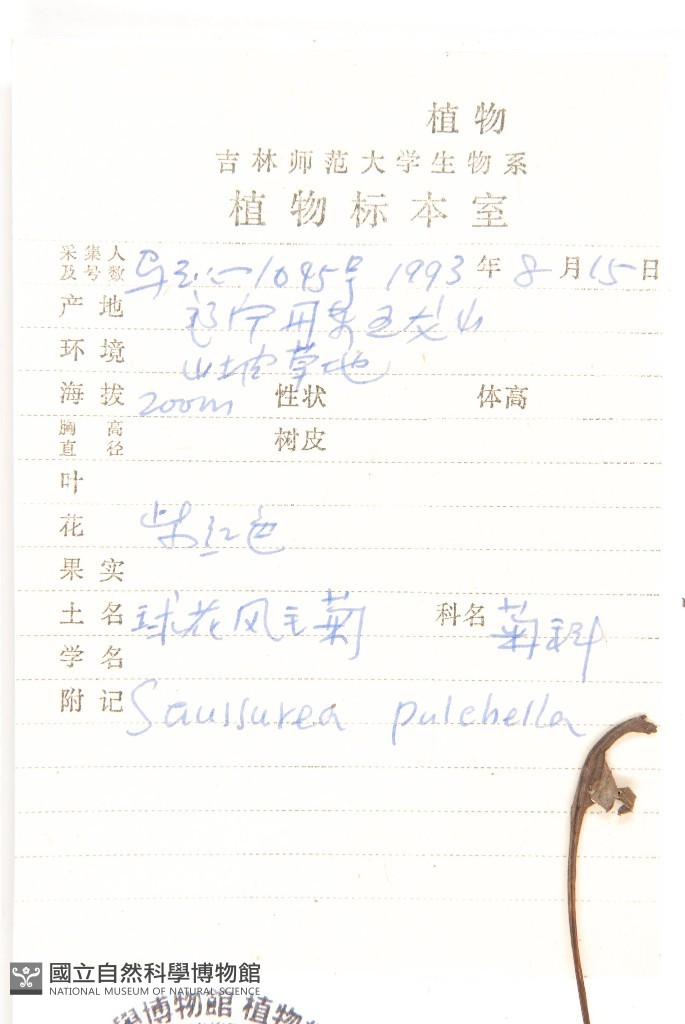 植物
吉林师范大学生物系
植物标本室
采集人及号数 1045号 1993年8月15日
产地
环境 山坡草地
海拔 200m 性状 体高
胸高直径 树皮
叶
花 紫红色
果实
土名 球花风毛菊 科名 菊科
学名
附记 Saussurea pulchella
國立自然科學博物館
NATIONAL MUSEUM OF NATURAL SCIENCE
學博物館 植物